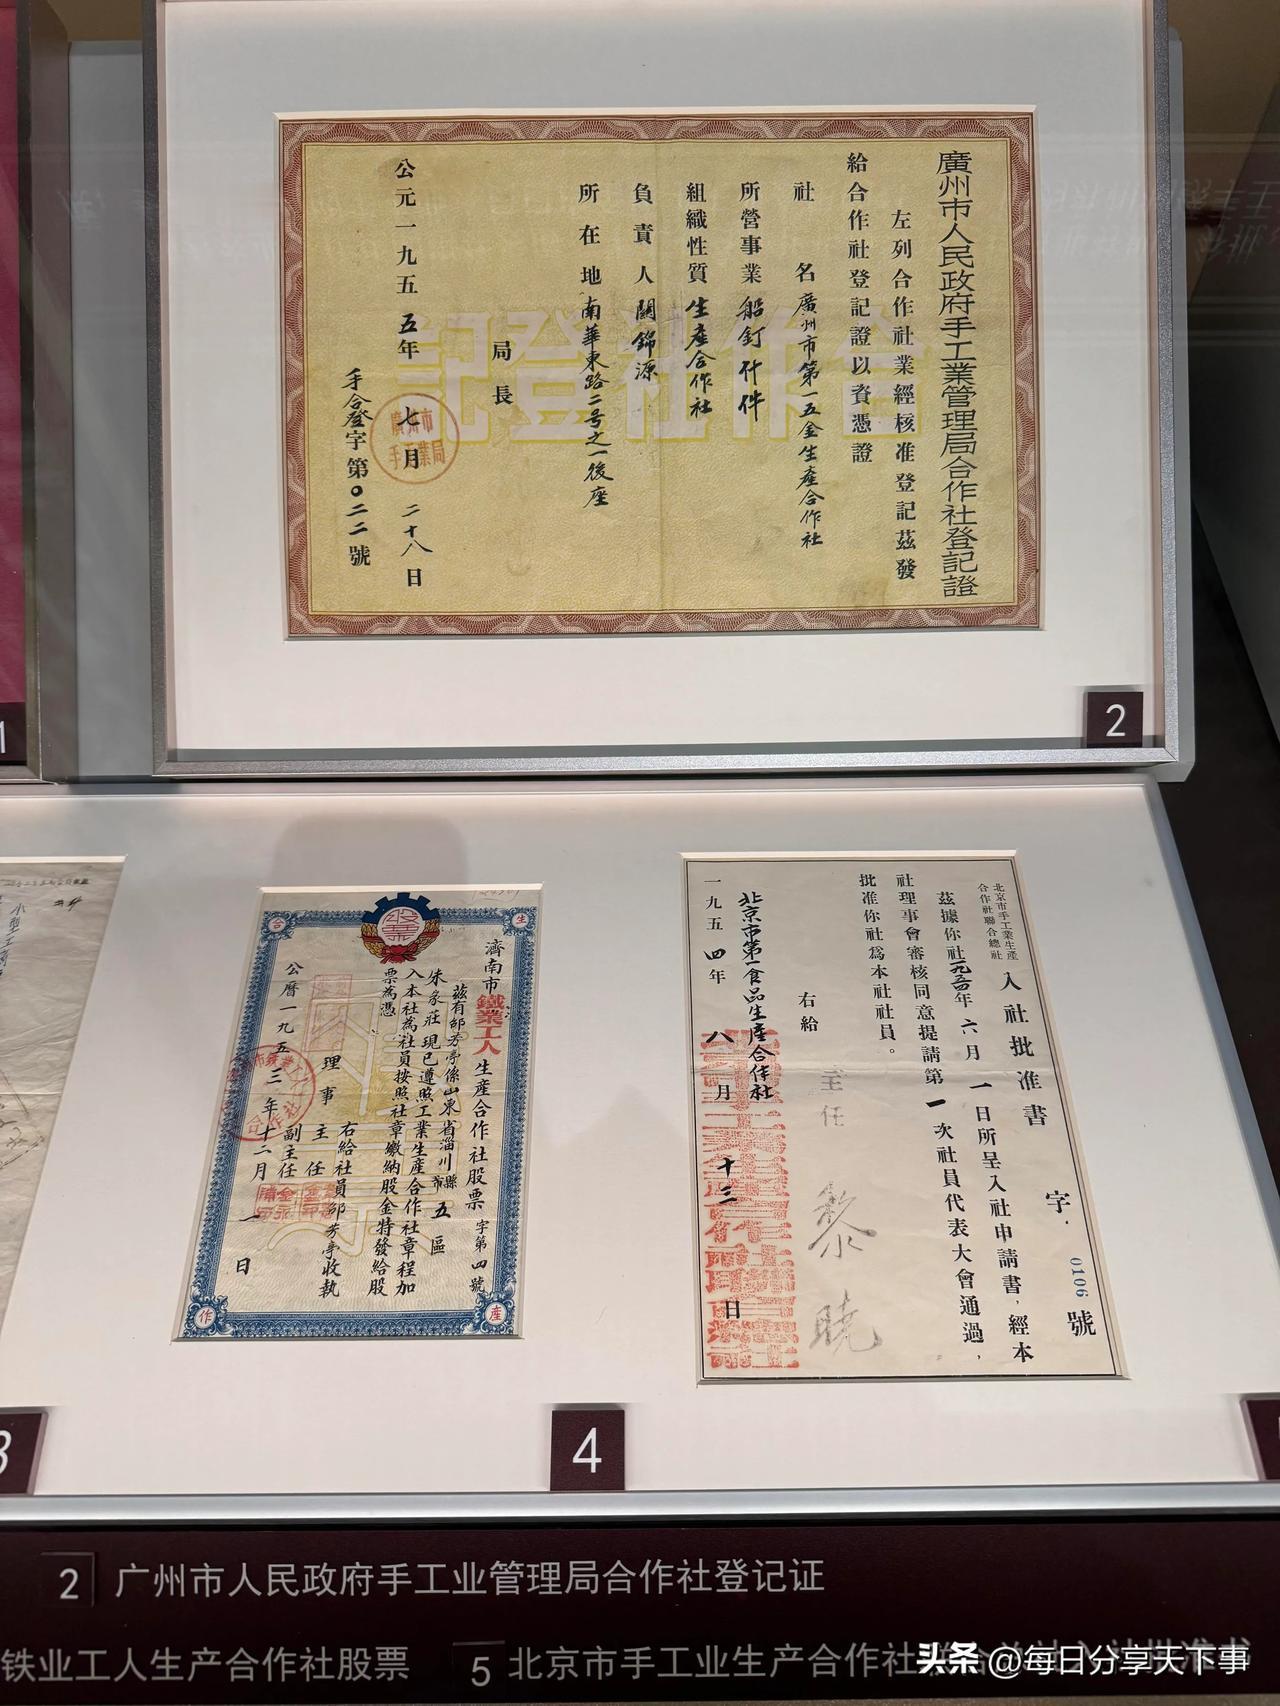 廣州市人民政府手工業管理局合作社登記證
左列合作社業經核准登記茲發
給合作社登記證以資憑證
社名廣州市第一五金生產合作社
所營事業船釘什件
組織性質生產合作社
負責人關錦源
所在地南華東路二号之一後座
局長
公元一九五五年七月二十八日
手合登字第〇二二號
合作社登記
廣州市
手工業局
2
1
合
生
股票
濟南市鐵業工人生產合作社股票字第四號
茲有邵芳亭係山東省淄川縣市五區
朱家莊現已遵照工業生產合作社章程加
入本社為社員按照社章繳納股金特發給股
票為憑
右給社員邵芳亭收執
理事主任
副主任
公曆一九五三年十二月一日
作
產
北京市手工業生產
合作社聯合總社
入社批准書
字.0106號
茲據你社一九五四年六月一日所呈入社申請書，經本
社理事會審核同意提請第一次社員代表大會通過，
批准你社爲本社社員。
右給
北京市第一食品生產合作社
主任黎曉
一九五四年八月十三日
3
4
2 广州市人民政府手工业管理局合作社登记证
铁业工人生产合作社股票
5 北京市手工业生产合作社
头条 @每日分享天下事